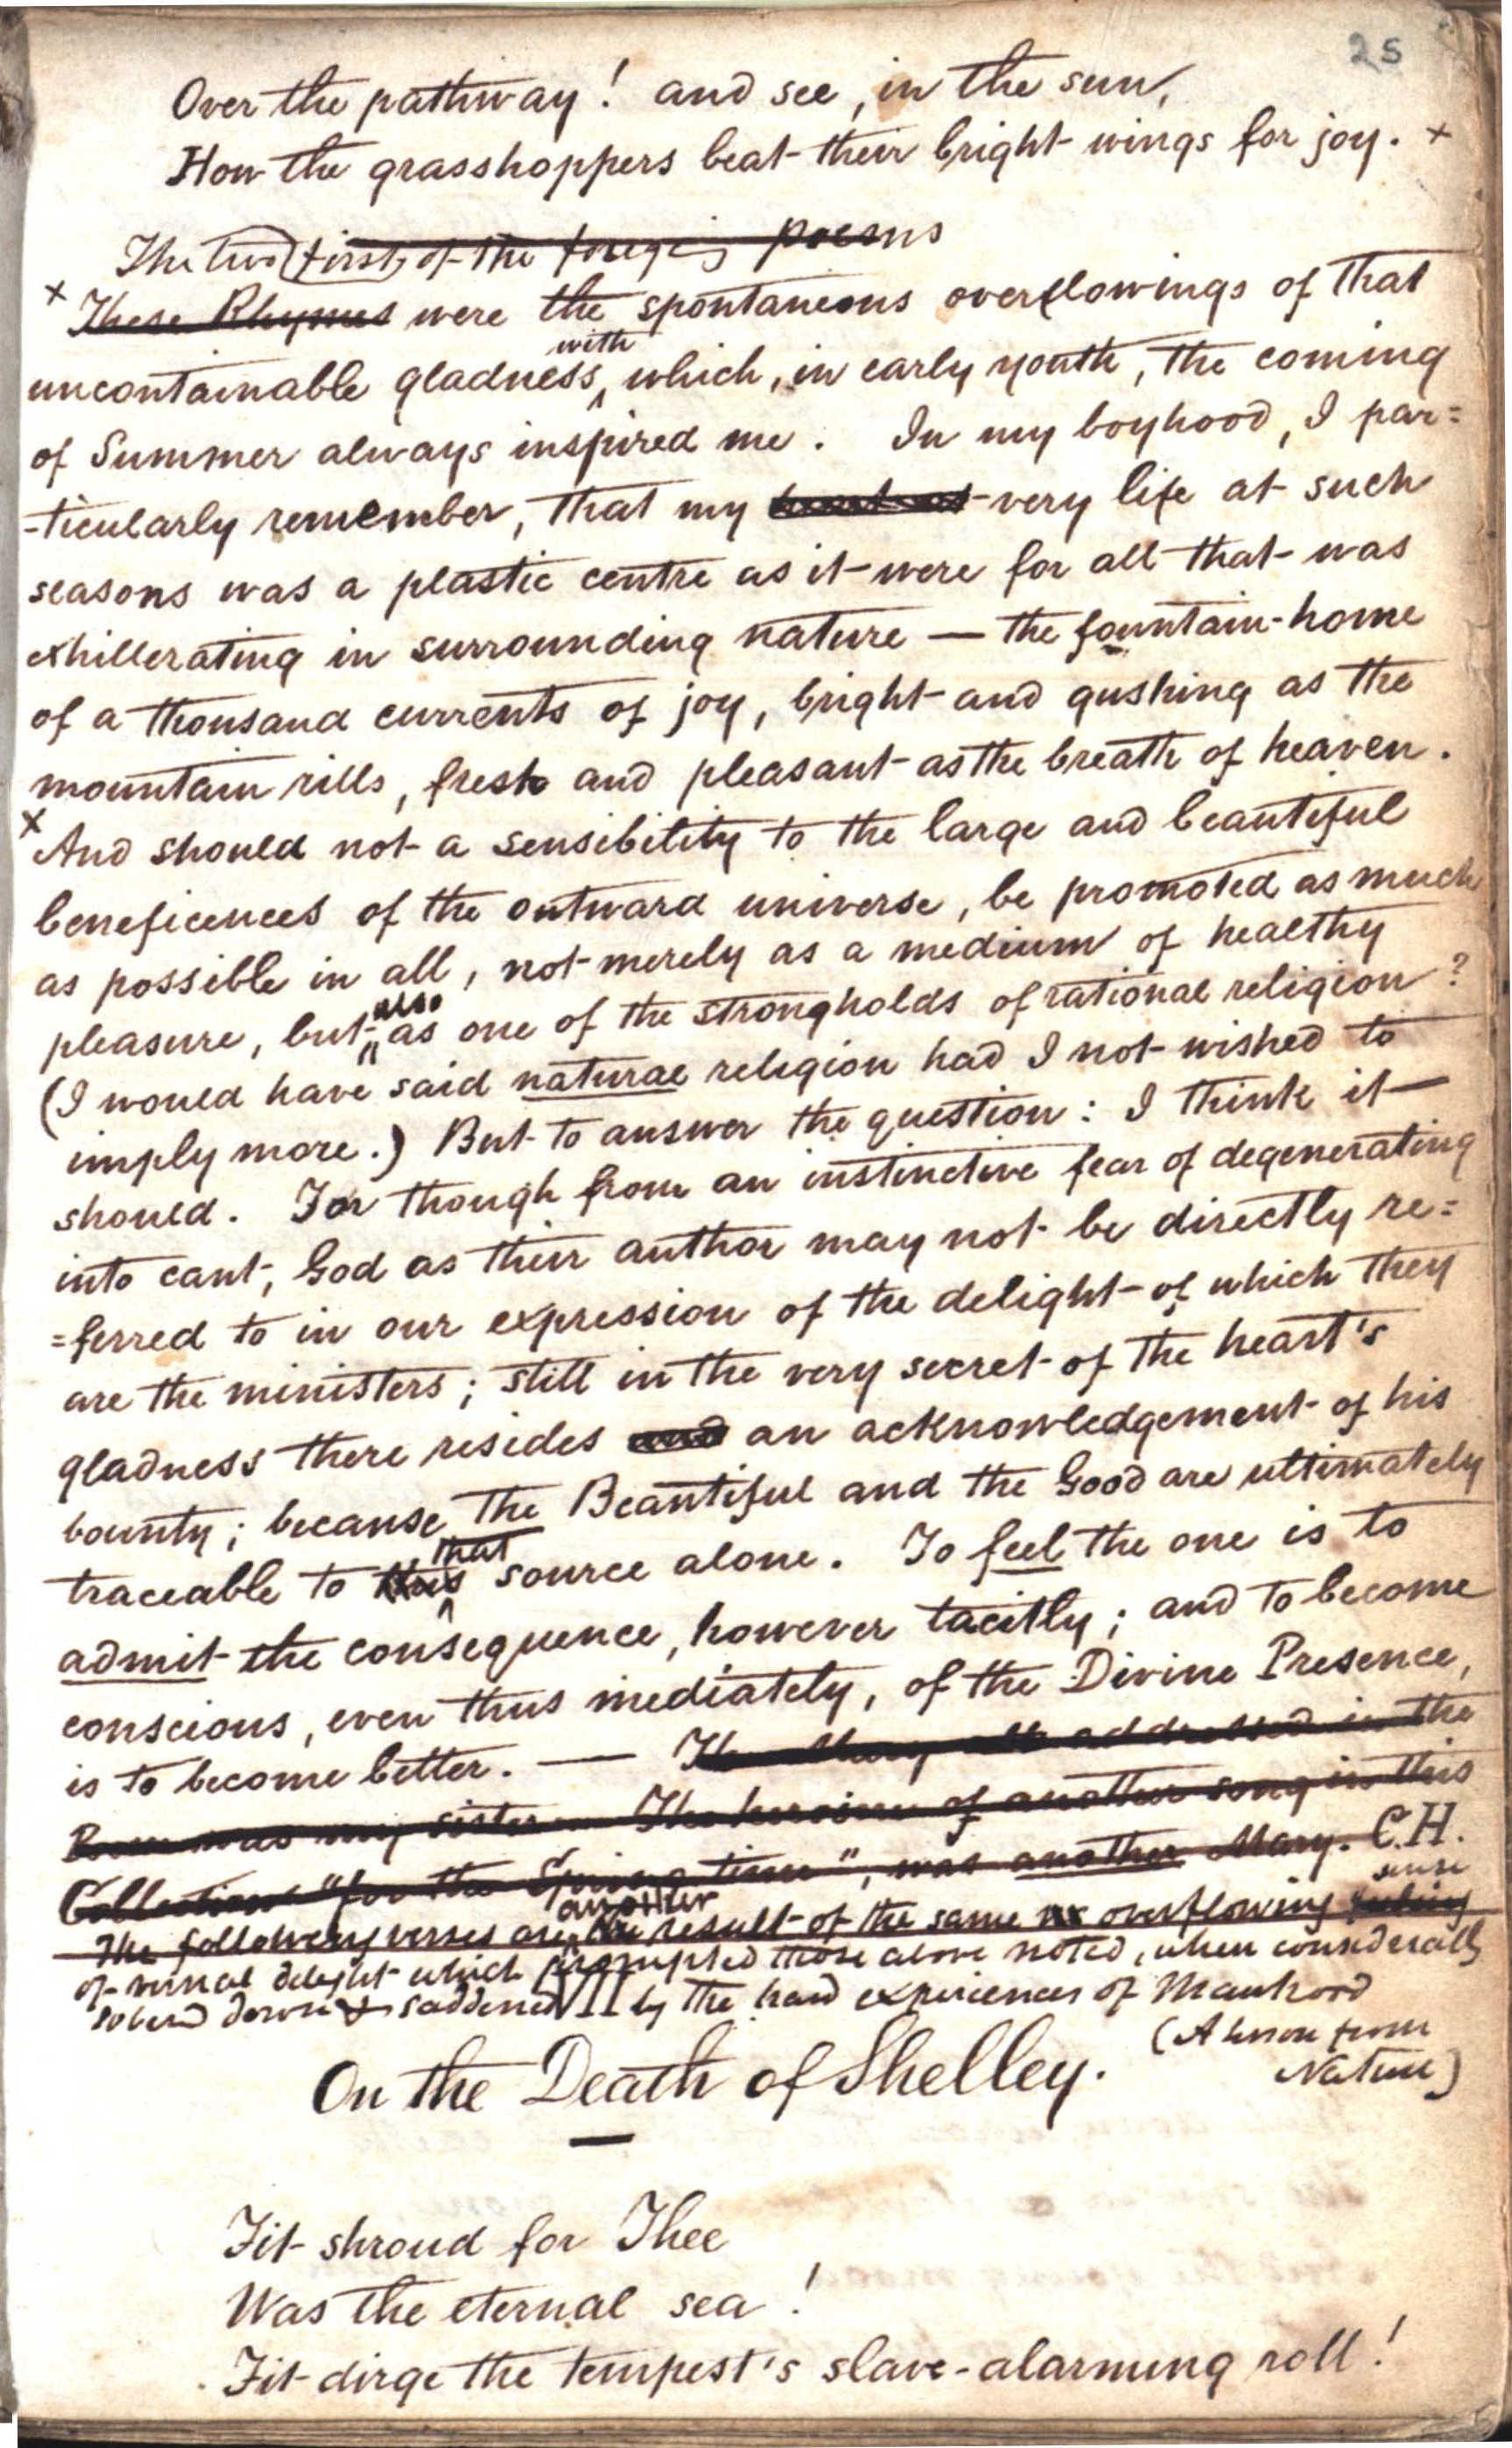 25
Over the pathway! and see, in the sun,
How the grasshoppers beat their bright wings for joy. +
The two (first) of the foregoing poems
x These Rhymes were the spontaneous overflowings of that
with
uncontainable gladness, which, in early youth, the coming
of Summer always inspired me. In my boyhood, I par=
-ticularly remember, that my very life at such
seasons was a plastic centre as it were for all that was
exhillerating in surrounding nature — the fountain-home
of a thousand currents of joy, bright and gushing as the
mountain rills, fresh and pleasant as the breath of heaven.
x And should not a sensibility to the large and beautiful
beneficences of the outward universe, be promoted as much
as possible in all, not merely as a medium of healthy
also
pleasure, but as one of the strongholds of rational religion?
(I would have said natural religion had I not wished to
imply more.) But to answer the question: I think it
should. For though from an instinctive fear of degenerating
into cant, God as their author may not be directly re=
=ferred to in our expression of the delight of which they
are the ministers; still in the very secret of the heart's
gladness there resides and an acknowledgement of his
bounty; because the Beautiful and the Good are ultimately
that
traceable to this source alone. To feel the one is to
admit the consequence, however tacitly; and to become
conscious, even thus mediately, of the Divine Presence,
is to become better. — The Mary addressed in the
was my sister. The heroine of another song in this
Collection "for the Spring time", was another Mary. C.H.
another sense
The following verses are the result of the same overflowing feeling
of vernal delight which prompted those above noted, when considerably
sobered down & saddened by the hard experiences of Manhood
(A lesson from
Nature)
On the Death of Shelley.
Fit shroud for Thee
Was the eternal sea!
Fit dirge the tempest's slave-alarming roll!